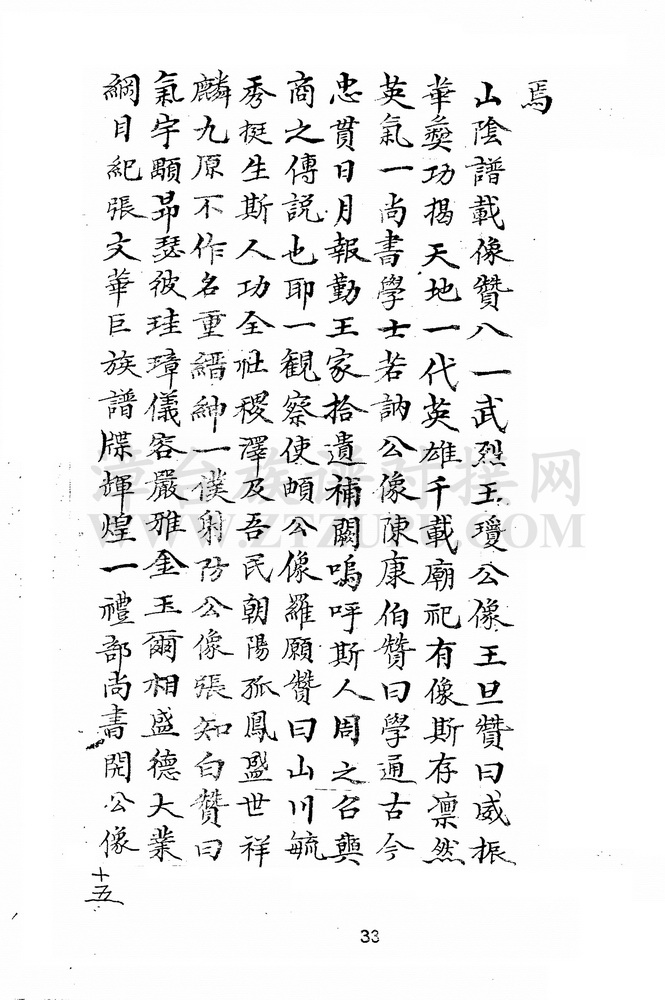 焉
山陰譜載像贊八一武烈王瓊公像王旦贊曰威振
華彝功揭天地一代英雄千載廟祀有像斯存凛然
英氣一尚書學士若訥公像陳康伯贊曰學通古今
忠貫日月報勤王家拾遺補闕嗚呼斯人周之召與
商之傅説也耶一觀察使頔公像羅願贊曰山川毓
秀挺生斯人功全社稷澤及吾民朝陽孤鳳盛世祥
麟九原不作名重縉紳一僕射防公像張知白贊曰
氣宇顒昻瑟彼珪璋儀容嚴雅金玉爾相盛德大業
綱目紀張文華巨族譜牒輝煌一禮部尚書閌公像
十五
33
WWW.ZTZUPU.COM